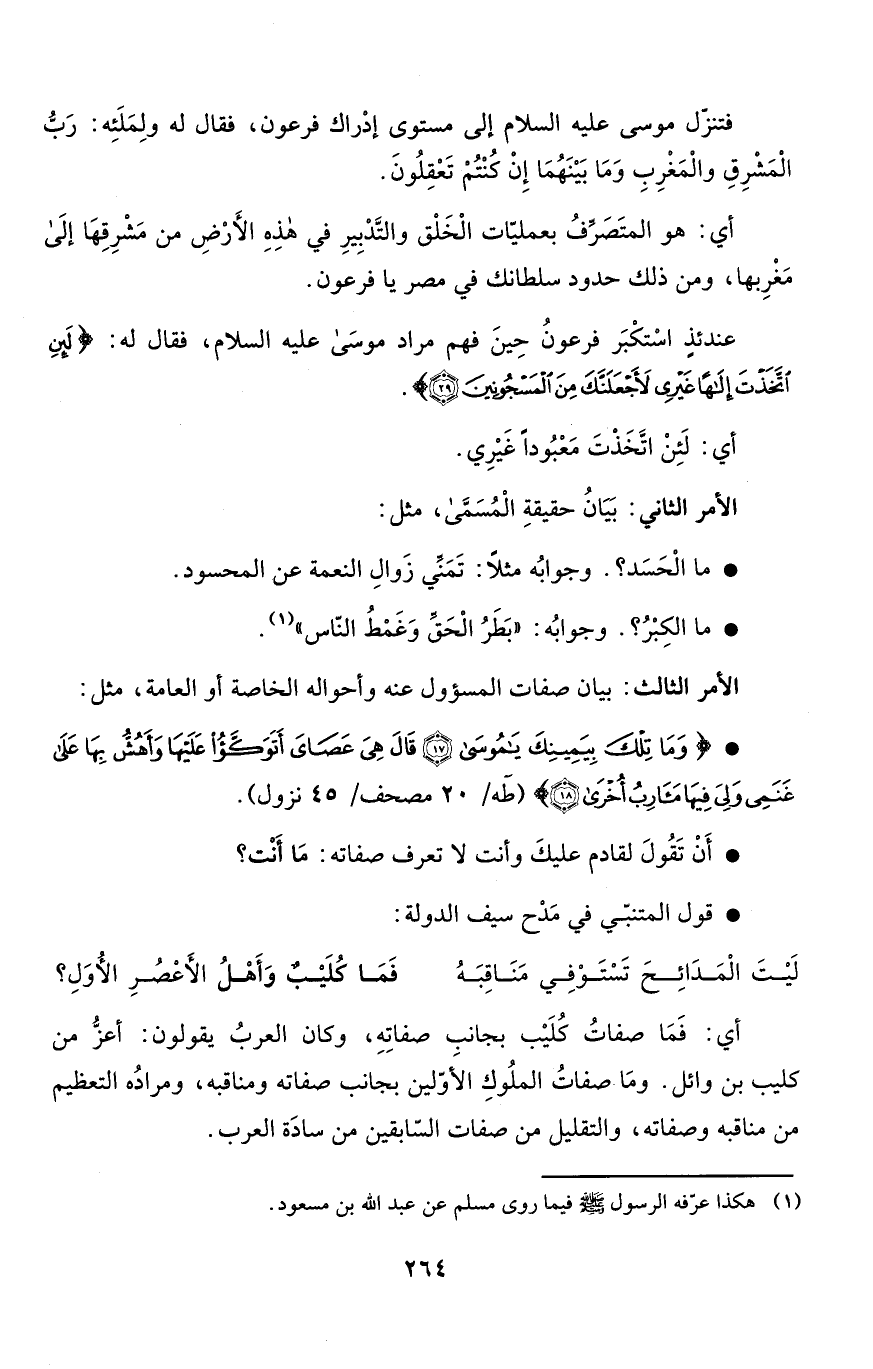 فتنزّل موسى عليه السلام إلى مستوى إدْراك فرعون، فقال له ولِمَلَئِه: رَبُّ
الْمَشْرِقِ والْمَغْرِبِ وَمَا بَيْنَهُمَا إِنْ كُنْتُمْ تَعْقِلُونَ.
أي: هو المتَصَرِّفُ بعمليّات الْخَلْق والتَّدْبِيرِ في هٰذِهِ الأَرْضِ من مَشْرِقِهَا إلَىٰ
مَغْرِبها، ومن ذلك حدود سلطانك في مصر يا فرعون.
عندئذٍ اسْتكْبَر فرعونُ حِينَ فهم مراد موسَىٰ عليه السلام، فقال له: ﴿لَئِنِ
ٱتَّخَذْتَ إِلَٰهًا غَيْرِى لَأَجْعَلَنَّكَ مِنَ ٱلْمَسْجُونِينَ ۝٢٩﴾.
أي: لَئِنْ اتَّخَذْتَ مَعْبُوداً غَيْرِي.
الأمر الثاني: بَيَانُ حقيقةِ الْمُسَمَّىٰ، مثل:
● ما الْحَسَد؟. وجوابُه مثلاً: تَمَنِّي زَوالِ النعمة عن المحسود.
● ما الكِبْرُ؟. وجوابُه: «بَطَرُ الْحَقِّ وَغَمْطُ النّاس»(١).
الأمر الثالث: بيان صفات المسؤول عنه وأحواله الخاصة أو العامة، مثل:
● ﴿وَمَا تِلْكَ بِيَمِينِكَ يَٰمُوسَىٰ ۝١٧ قَالَ هِىَ عَصَاىَ أَتَوَكَّؤُا۟ عَلَيْهَا وَأَهُشُّ بِهَا عَلَىٰ
غَنَمِى وَلِىَ فِيهَا مَـَٔارِبُ أُخْرَىٰ ۝١٨﴾ (طٓه/ ٢٠ مصحف/ ٤٥ نزول).
● أَنْ تَقُولَ لقادم عليكَ وأنت لا تعرف صفاته: مَا أَنْت؟
● قول المتنبّي في مَدْح سيف الدولة:
لَيْتَ الْمَدَائِحَ تَسْتَوْفِي مَنَاقِبَهُ فَمَا كُلَيْبٌ وَأَهْلُ الأَعْصُرِ الأُوَلِ؟
أي: فَمَا صفاتُ كُلَيْب بجانبِ صفاتِهِ، وكان العربُ يقولون: أعزُّ من
كليب بن وائل. ومَا صفاتُ الملُوكِ الأوّلين بجانب صفاته ومناقبه، ومرادُه التعظيم
من مناقبه وصفاته، والتقليل من صفات السّابقين من سادَة العرب.
(١) هكذا عرّفه الرسول ﷺ فيما روى مسلم عن عبد الله بن مسعود.
٢٦٤